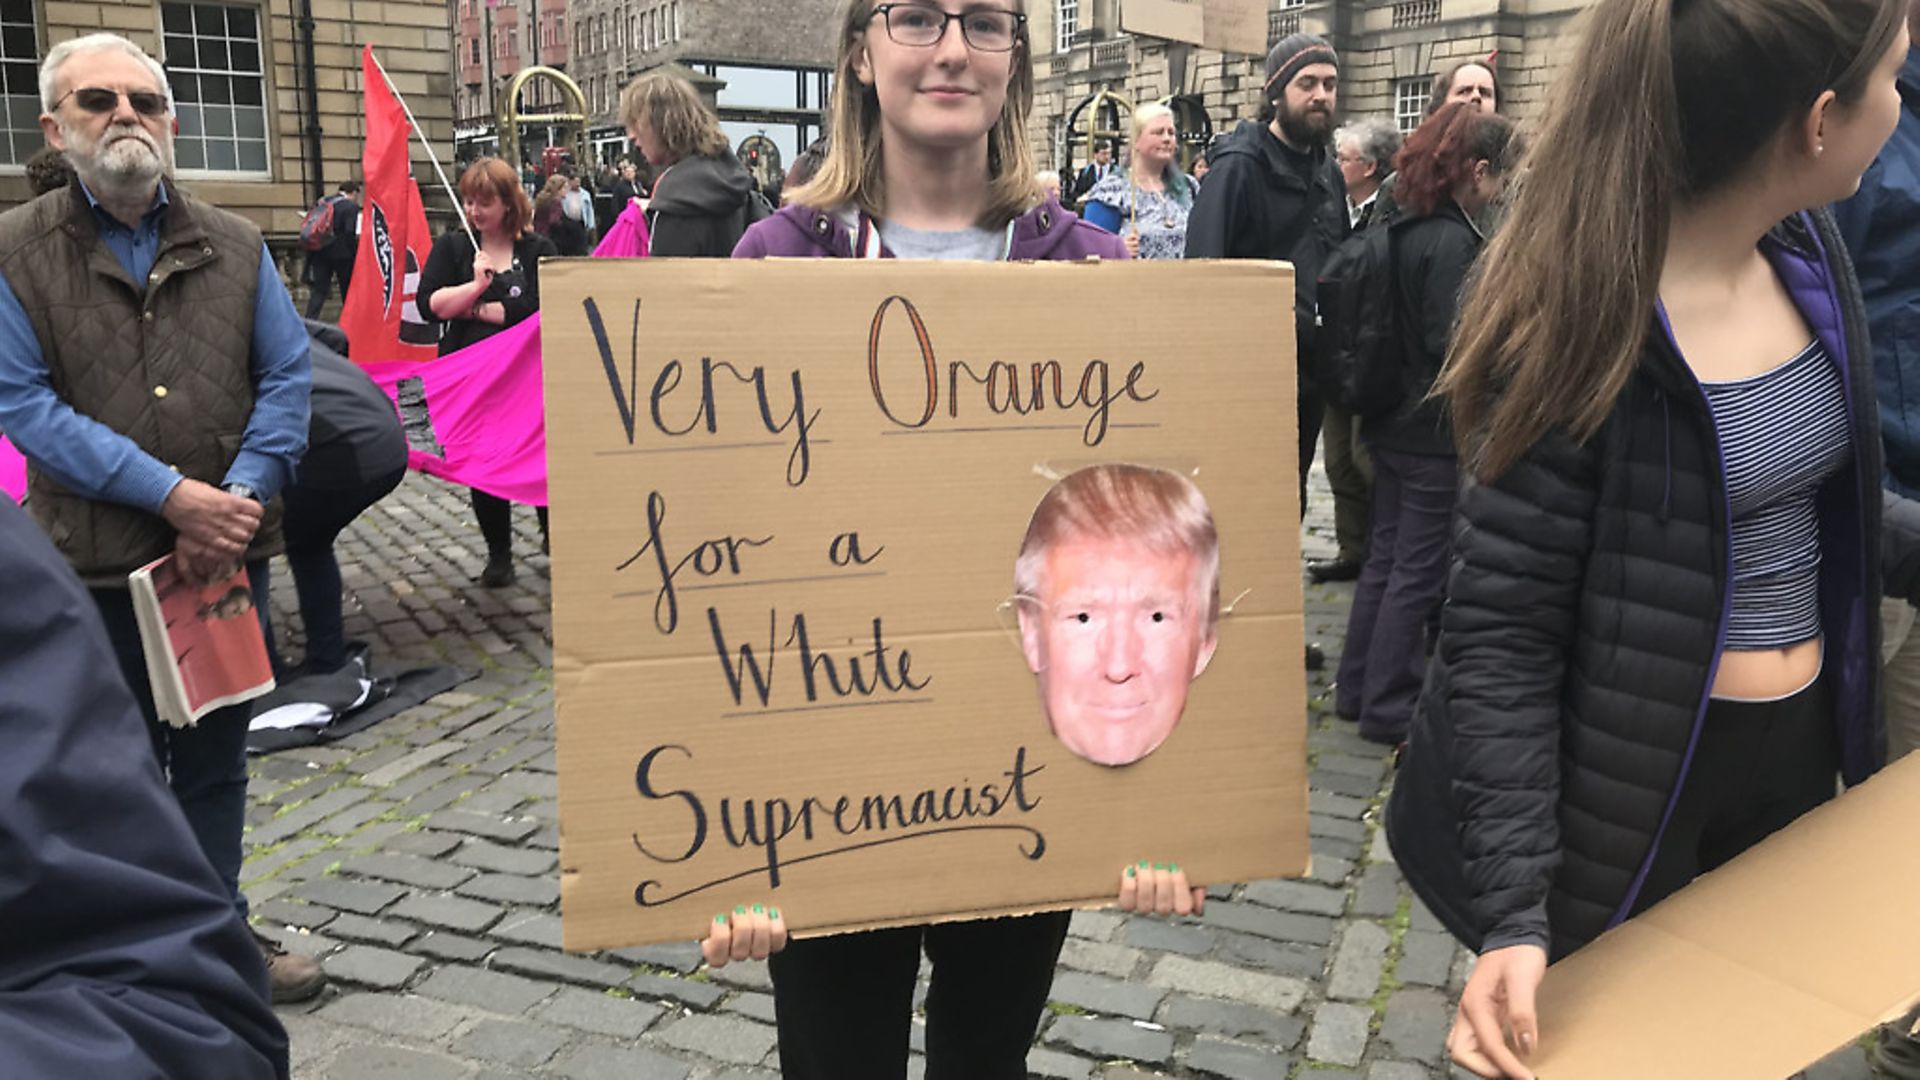 Very Orange
for a
White
Supremacist